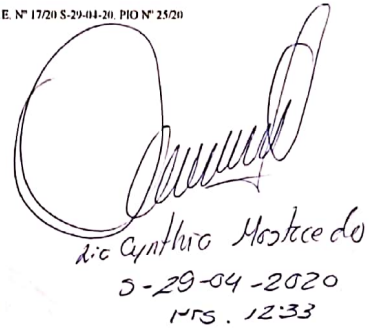 E. Nº 17/20 S-29-04-20. PIO Nº 25/20
Lic Cynthia Mostacedo
S-29-04-2020
Hrs. 12:33